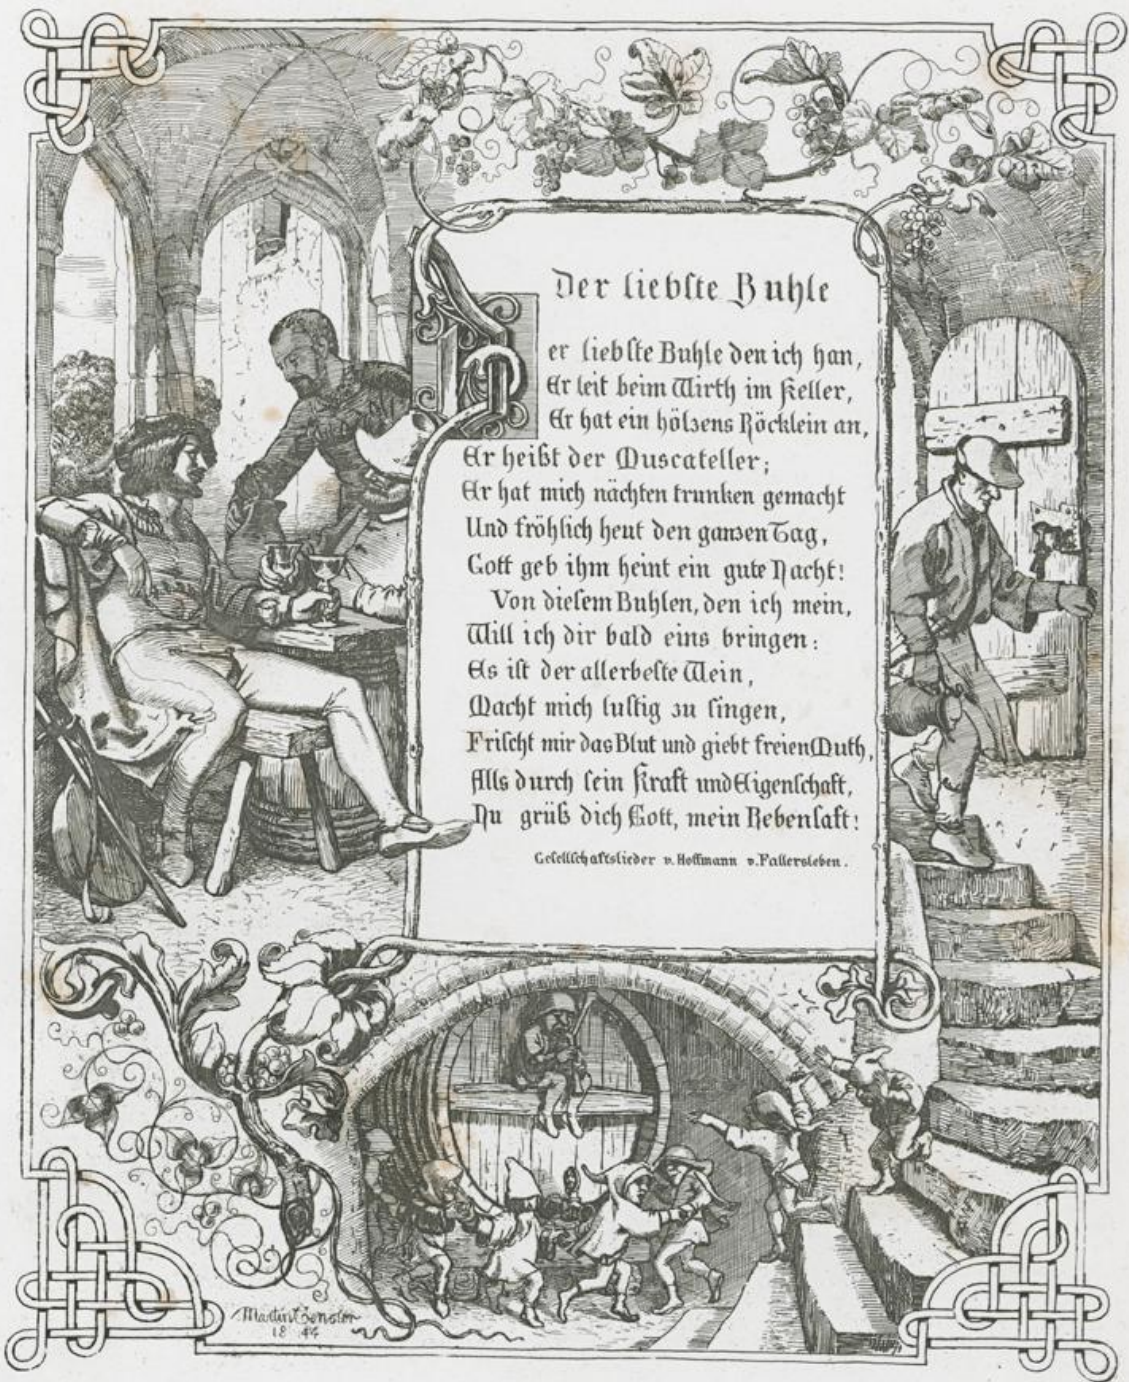 Der liebste Buhle
Der liebste Buhle den ich han,
Er leit beim Wirth im Keller,
Er hat ein hölzens Röcklein an,
Er heißt der Muscateller;
Er hat mich nächten trunken gemacht
Und fröhlich heut den ganzen Tag,
Gott geb ihm heint ein gute Nacht!
Von diesem Buhlen, den ich mein,
Will ich dir bald eins bringen:
Es ist der allerbeste Wein,
Macht mich lustig zu singen,
Frischt mir das Blut und giebt freien Muth,
Alls durch sein Kraft und Eigenschaft,
Nu grüß dich Gott, mein Rebensaft!
Gesellschaftslieder v. Hoffmann v. Fallersleben.
Martin Gensler
1844